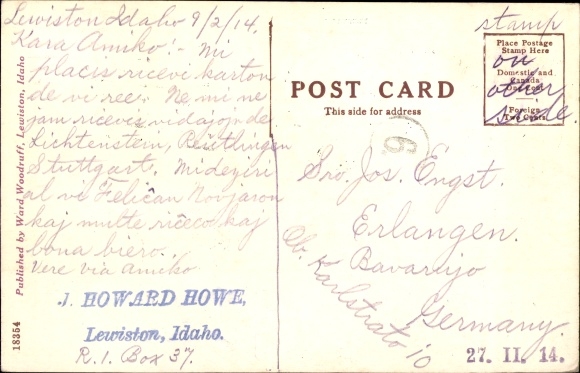 Lewiston Idaho 9/2/14.
Kara Amiko! - Mi
placis ricevi karton
de vi ree. Ne mi ne
jam ricevis vidajojn de
Lichtenstein, Reutlingen
Stuttgart. Mi deziri
al vi Feliĉan Novjaron
kaj multe riĉeco kaj
bona biero.
Vere via Amiko
J. HOWARD HOWE,
Lewiston, Idaho.
R.1. Box 37.
Published by Ward Woodruff, Lewiston, Idaho
18354
POST CARD
This side for address
stamp
on
other
side.
Place Postage
Stamp Here
Domestic and
Canada
Foreign
Two Cents
6
Sro. Jos. Engst.
Erlangen.
Bavarujo
Germany.
Ob. Karlstrato 10
27. II. 14.